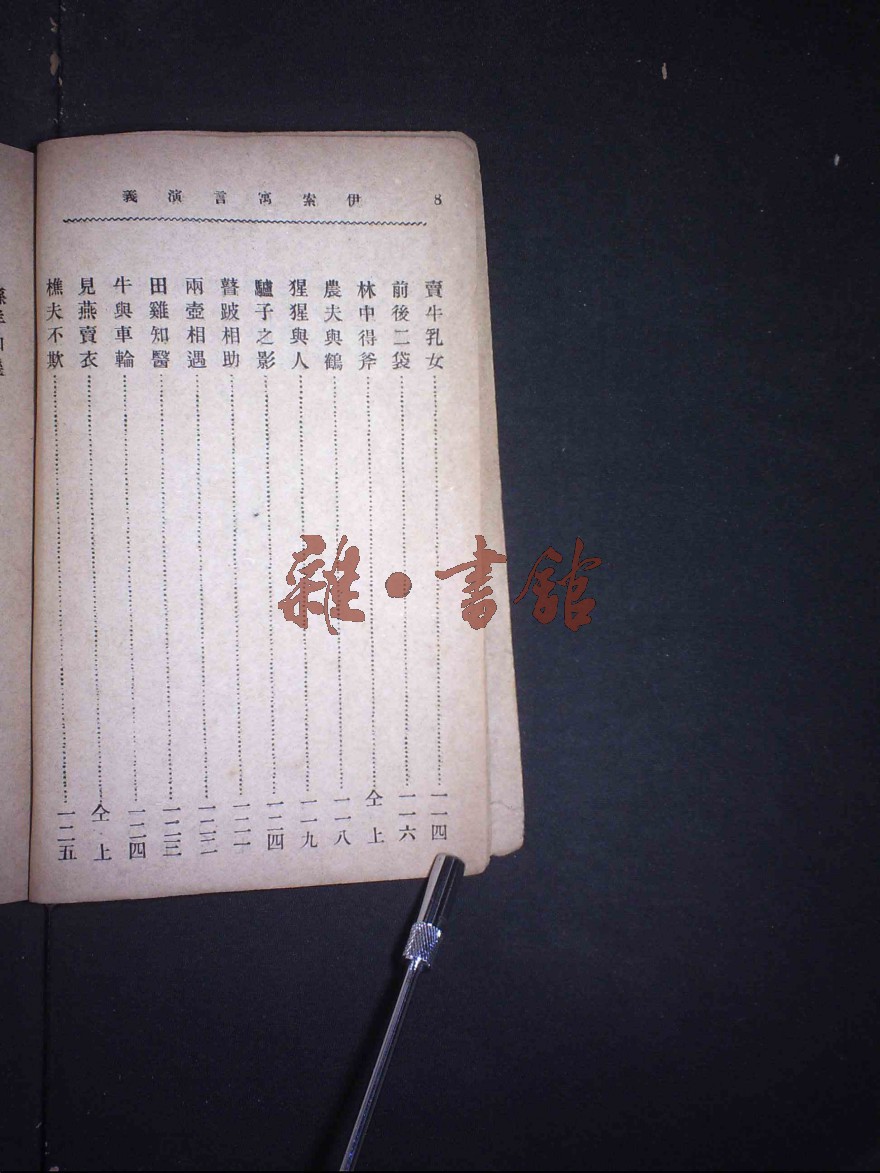 8 伊索寓言演義
賣牛乳女……一一四
前後二袋……一一六
林中得斧……仝上
農夫與鶴……一一八
猩猩與人……一一九
驢子之影……一二四
瞽跛相助……一二一
兩壺相遇……一二二
田雞知醫……一二三
牛與車輪……一二四
見燕賣衣……仝上
樵夫不欺……一二五
雜·書館